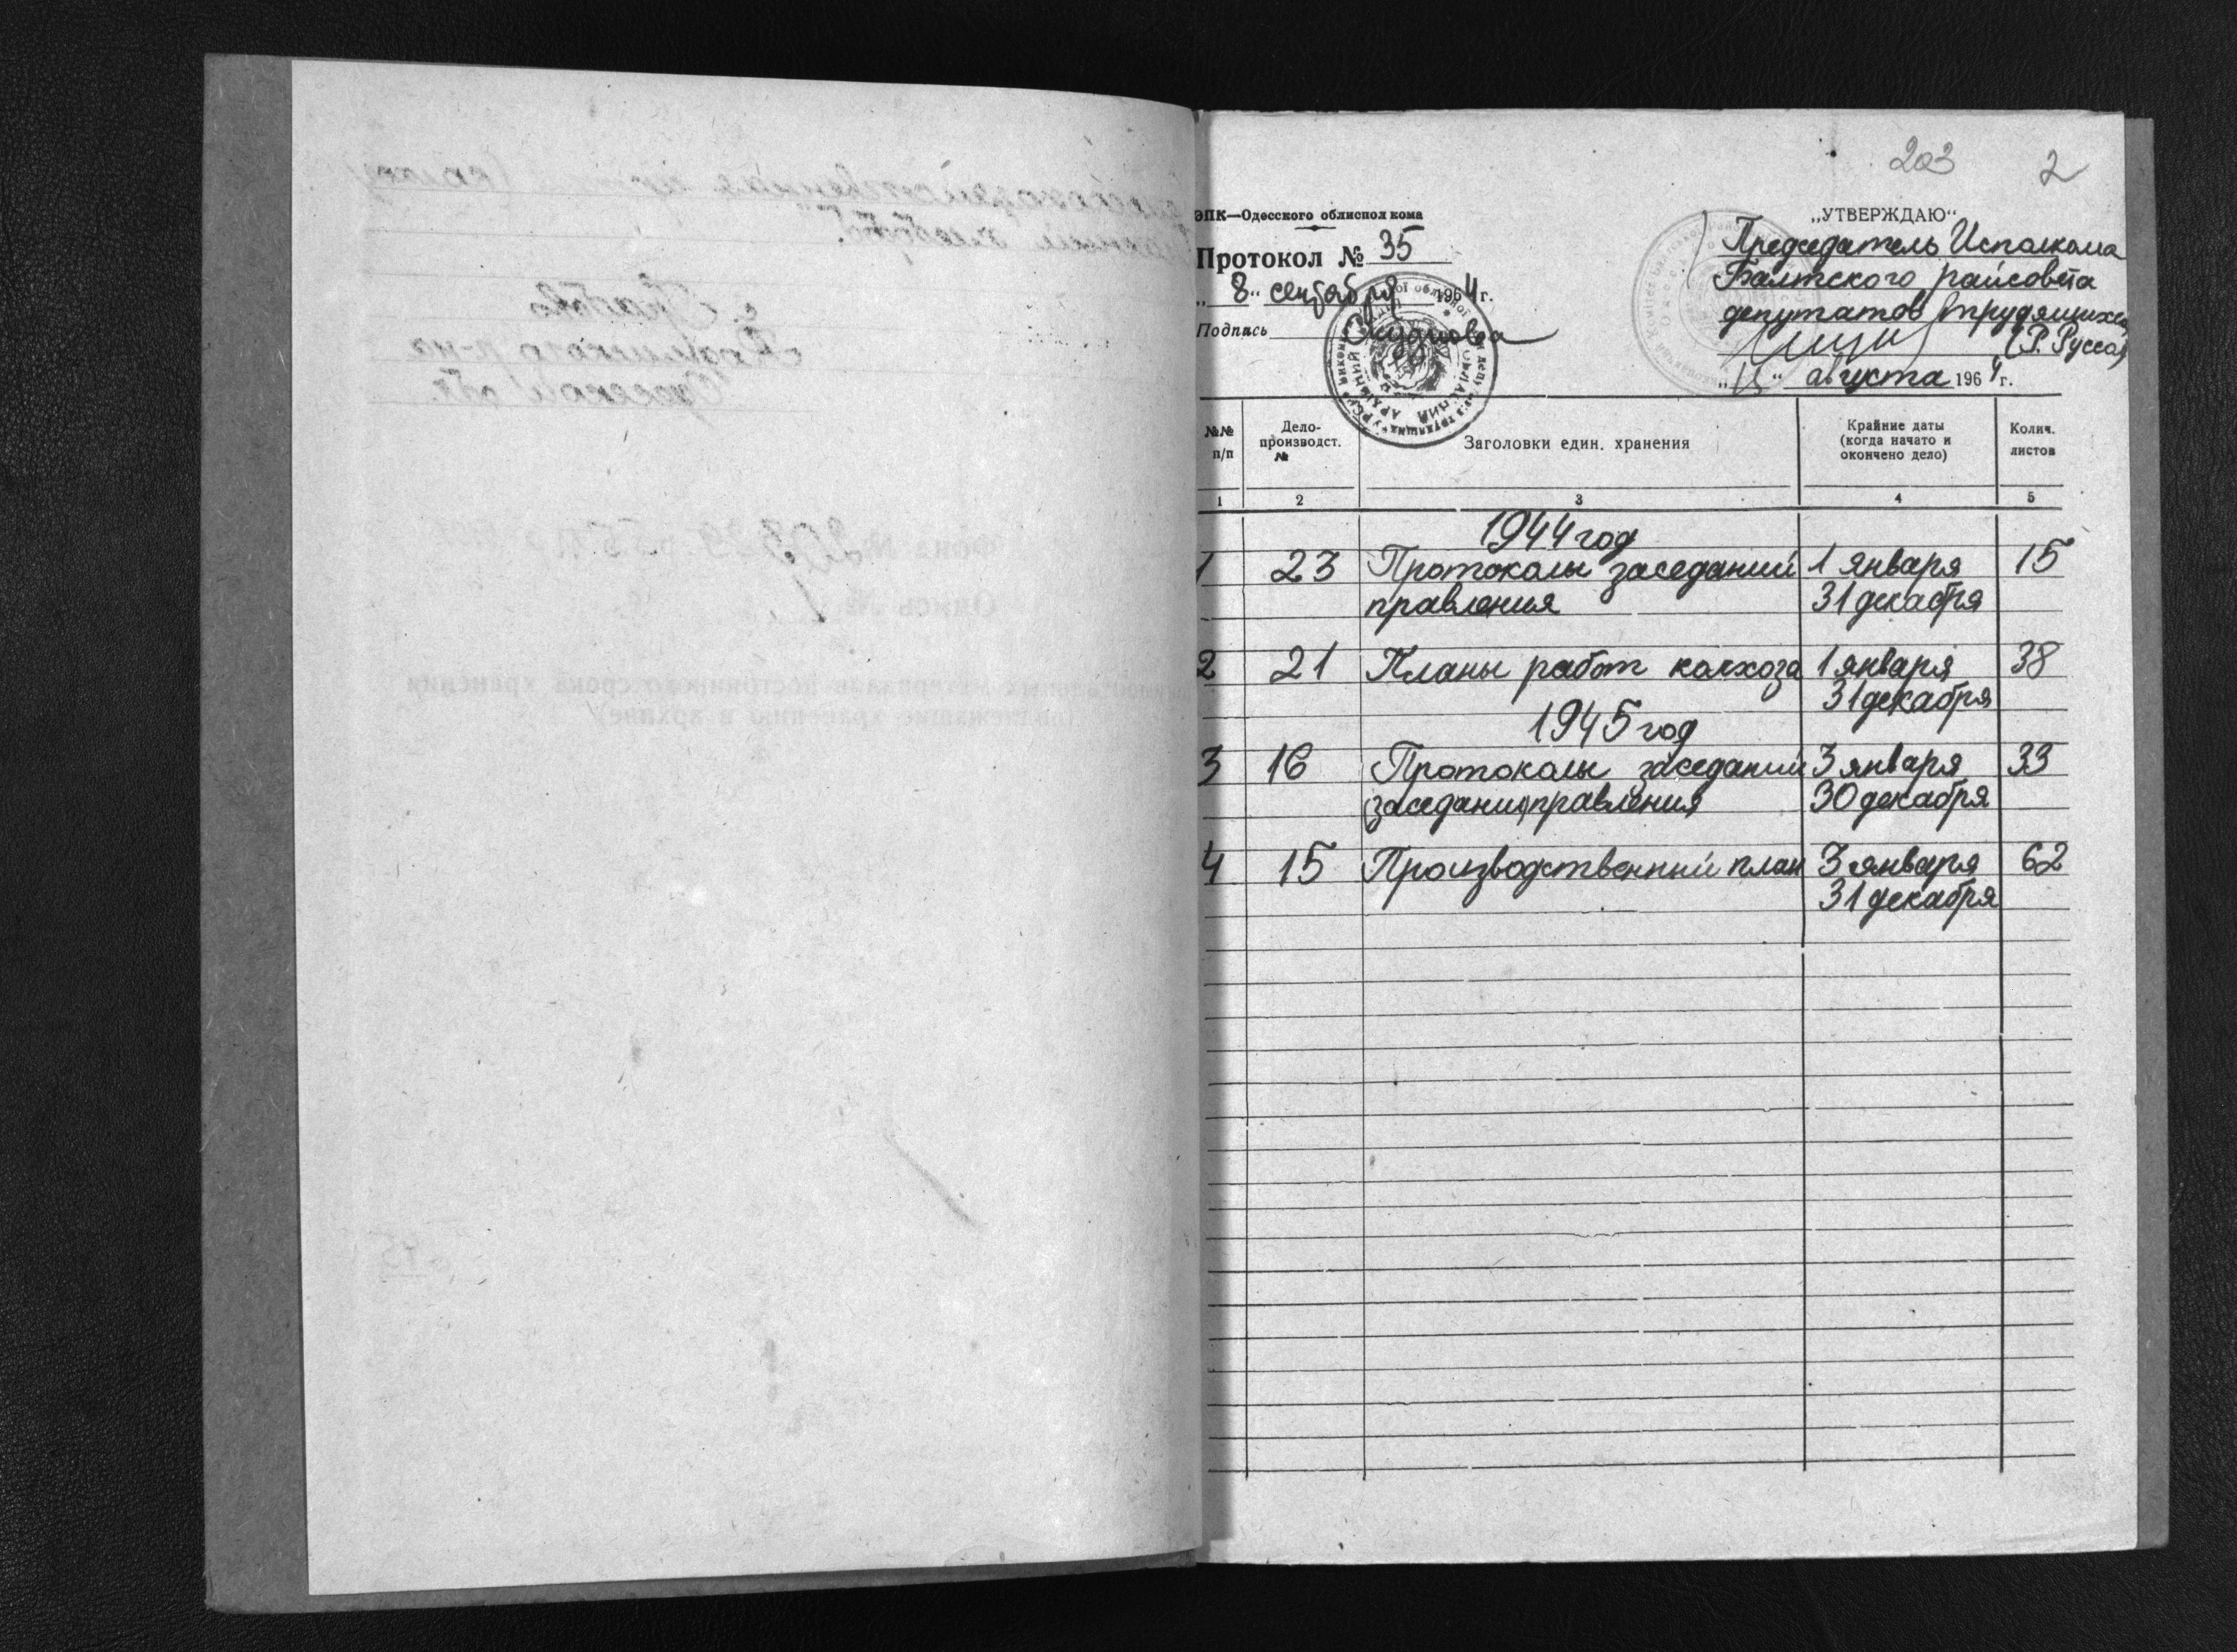 203 2
ЭПК—Одесского облисполкома
Протокол № 35
„8" сентября 1964 г.
Подпись
„УТВЕРЖДАЮ"
Председатель Исполкома
Балтского райсовета
депутатов трудящихся
(Р. Русса)
августа 1964 г.
№№ п/п
Дело-производст. №
Заголовки един. хранения
Крайние даты (когда начато и окончено дело)
Колич. листов
1 2 3 4 5
1944 год
1 23 Протоколы заседаний 1 января 15
правления 31 декабря
2 21 Планы работ колхоза 1 января 38
31 декабря
1945 год
3 16 Протоколы заседаний 3 января 33
(заседания) правления 30 декабря
4 15 Производственний план 3 января 62
31 декабря